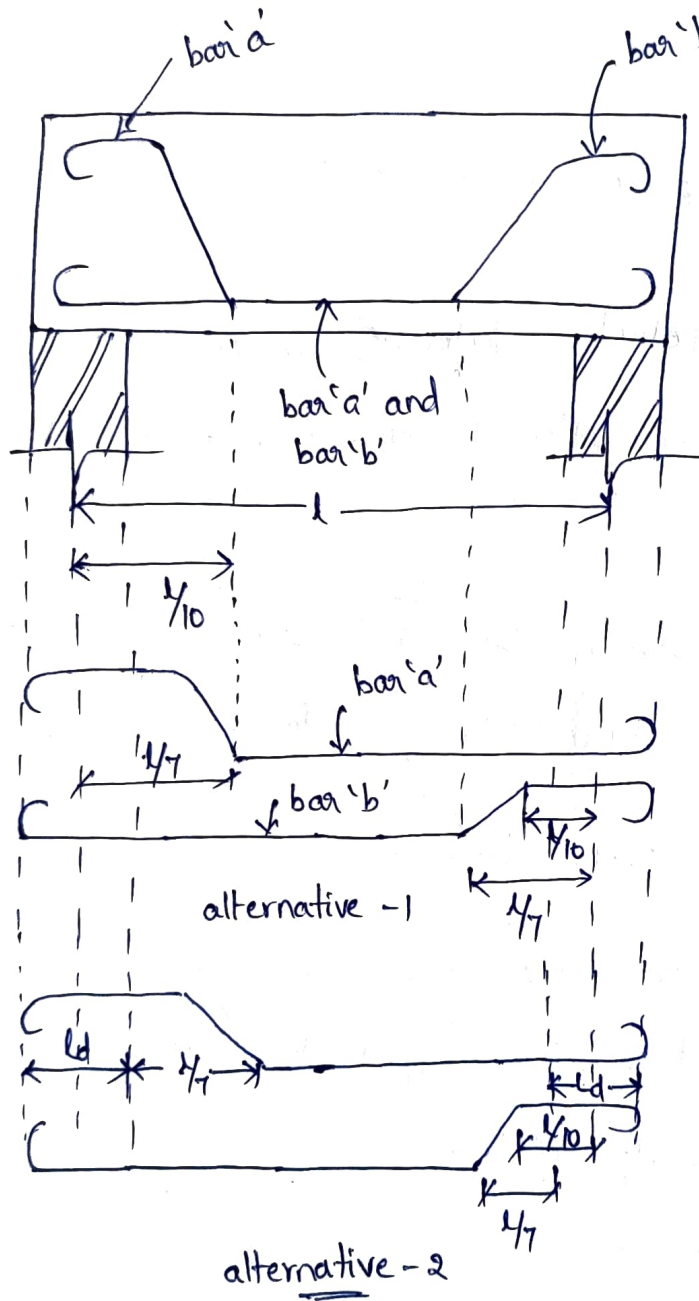 bar 'a'
bar '
bar 'a' and
bar 'b'
l
l/10
bar 'a'
l/7
bar 'b'
l/10
l/7
alternative -1
ld
l/7
ld
l/10
l/7
alternative - 2